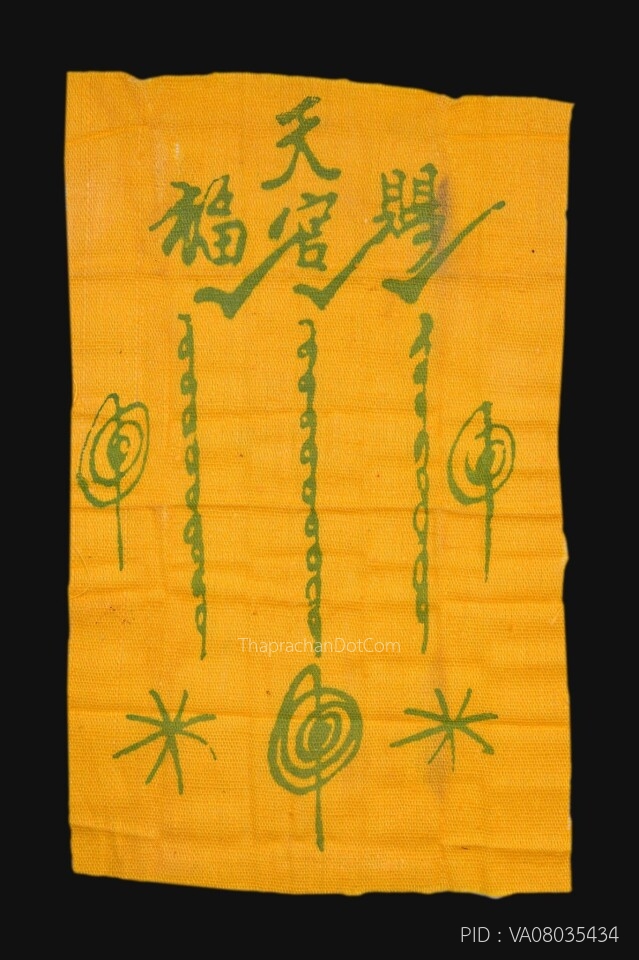 天官
賜
福
ThaprachanDotCom
PID : VA08035434